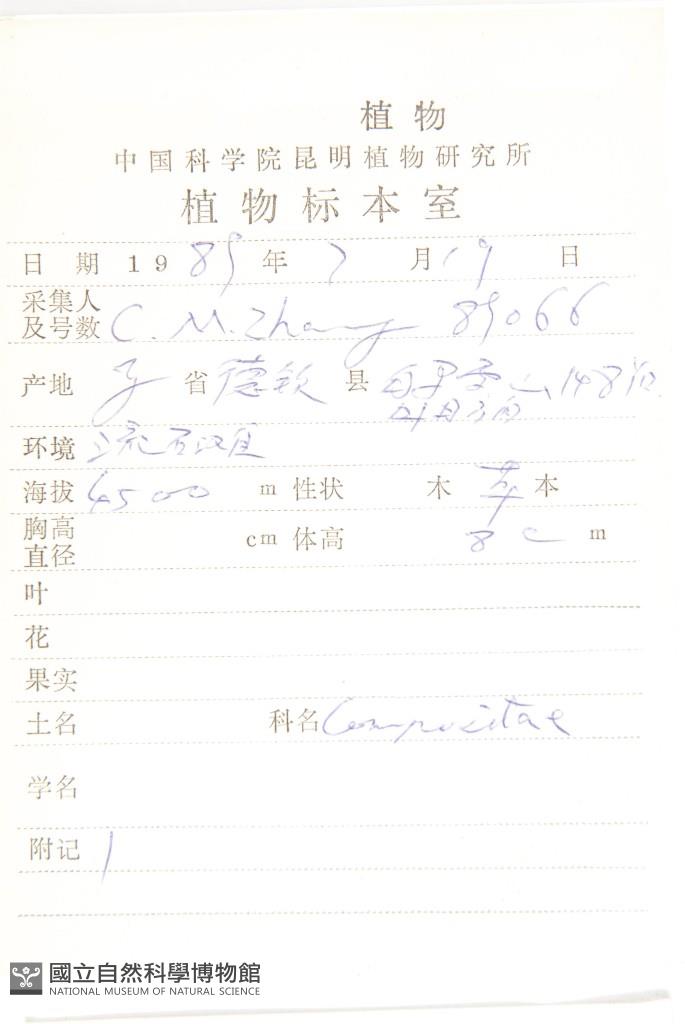 植物
中国科学院昆明植物研究所
植物标本室
日 期 19 89 年 7 月 19 日
采集人
及号数 C. M. Zhang 89066
产地 省 德钦 县 白马雪山 148
环境 流石
海拔 4500 m 性状 木 草 本
胸高
直径 cm 体高 8 c m
叶
花
果实
土名 科名 Compositae
学名
附记 1
國立自然科學博物館
NATIONAL MUSEUM OF NATURAL SCIENCE